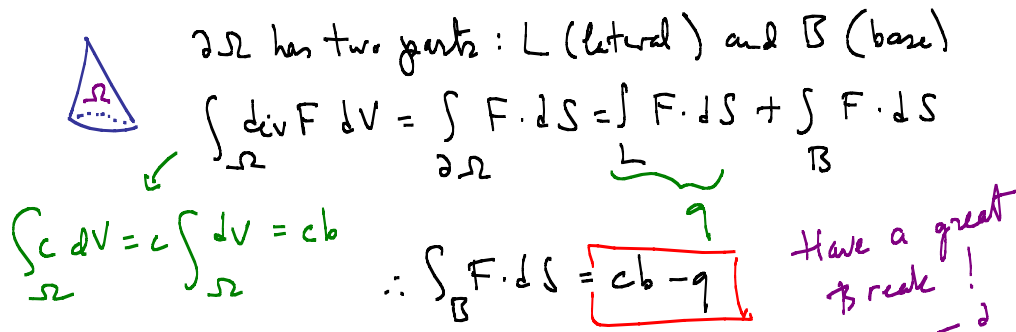 ∂Ω has two parts : L (lateral) and B (base)
Ω
∫_Ω div F dV = ∫_∂Ω F · dS = ∫_L F · dS + ∫_B F · dS
q
∫_Ω c dV = c ∫_Ω dV = cb
∴ ∫_B F · dS = cb - q
Have a great
Break !